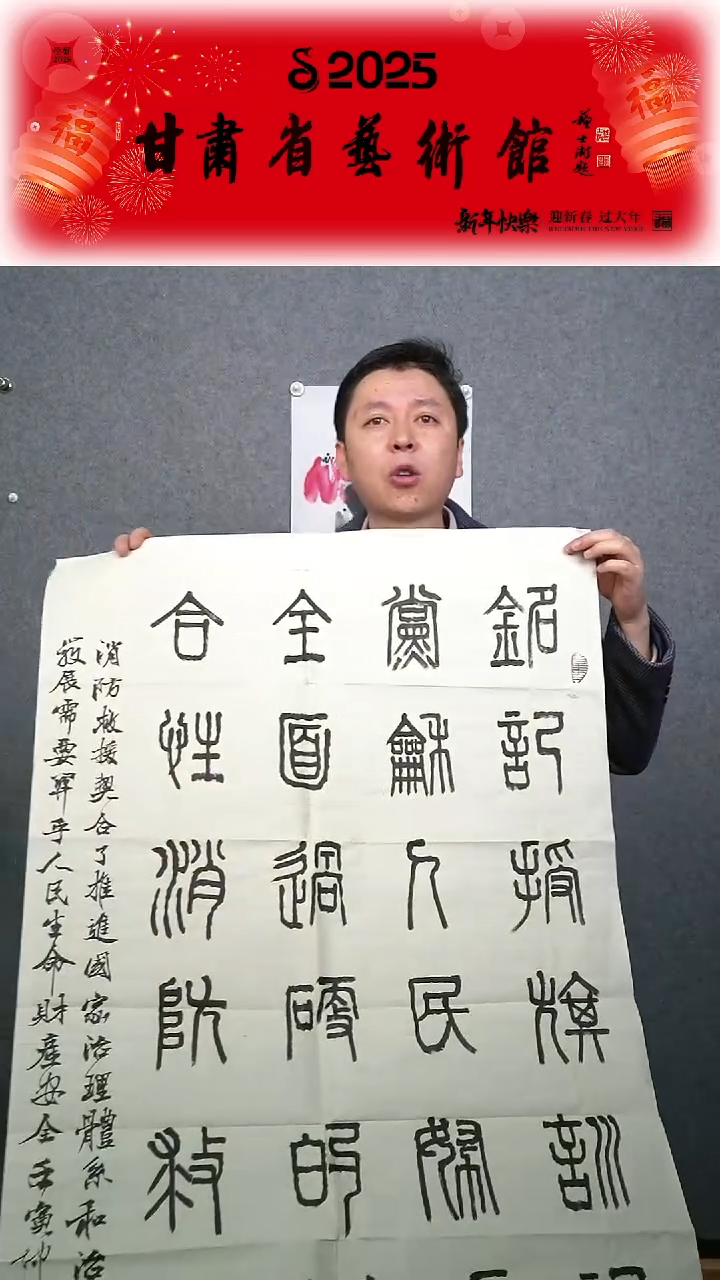 2025
甘肅省藝術館
福
福
新年快樂
迎新春 过大年
WELCOME THE NEW YEAR
銘記授旗訓
黨龢人民
全面過硬的
合性消防救
消防救援契合了推進國家治理體系和治
發展需要乎人民生命財產安全壬寅仲